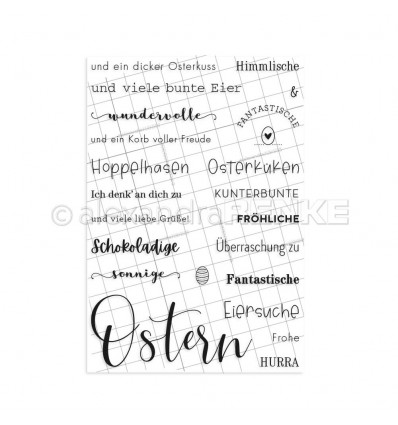 und ein dicker Osterkuss
Himmlische
und viele bunte Eier
&
wundervolle
FANTASTISCHE
und ein Korb voller Freude
Hoppelhasen
Osterküken
Ich denk' an dich zu
KUNTERBUNTE
und viele liebe Grüße!
FRÖHLICHE
© alexandra RENKE
Schokoladige
Überraschung zu
sonnige
Fantastische
Eiersuche
Ostern
Frohe
HURRA